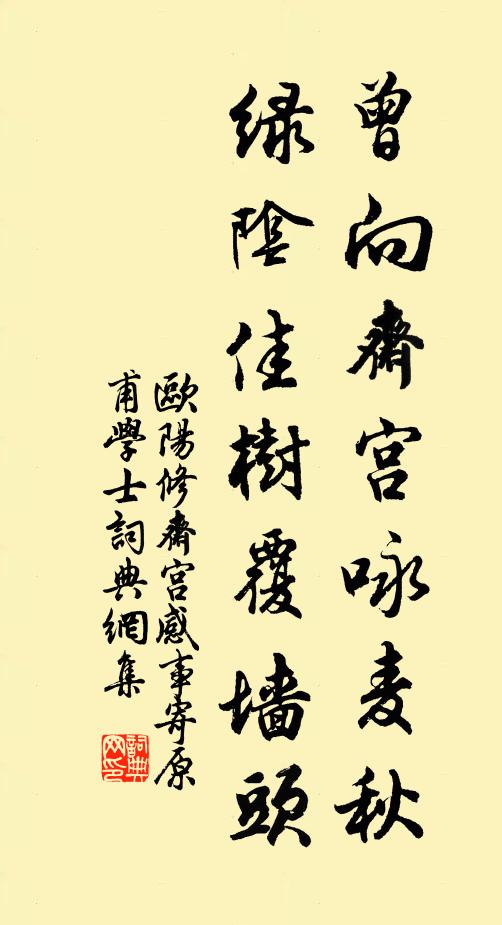 曾向齋宫咏麦秋
绿陰佳樹覆墙頭
歐陽修齋宫感事寄原
甫學士詞典網集
詞典
网印